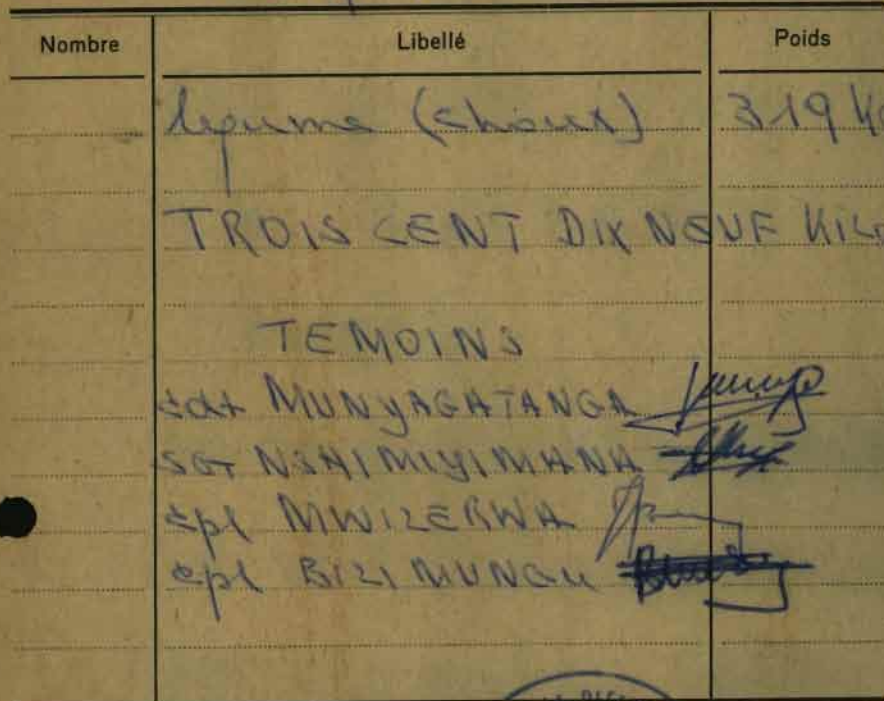 Nombre Libellé Poids
legume (choux) 319 Kg
TROIS CENT DIX NEUF KILO
TEMOINS
cdt MUNYAGATANGA
SGT NSHIMIYIMANA
cpl MWIZERWA
cpl BIZIMUNGU